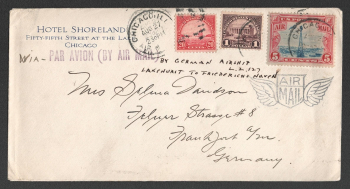 HOTEL SHORELAND
FIFTY-FIFTH STREET AT THE LAKE
CHICAGO
CHICAGO, ILL.
VIA - PAR AVION (BY AIR MAIL)
BY GERMAN AIRSHIP
L.Z. 127
LAKEHURST TO FRIEDRICHSHAFEN
AIR
MAIL
Mrs Selma Davidson
Straße #8
Frankfurt a/m
Germany.